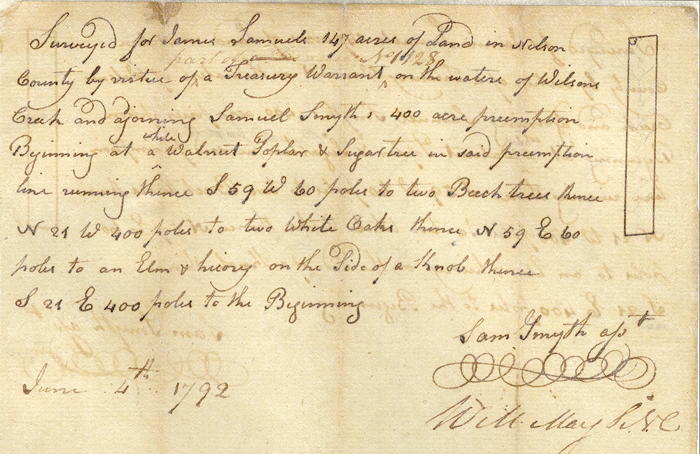 Surveyed for James Samuels 147 acres of Land in Nelson
part of
County by virtue of a Treasury Warrant ^ on the waters of Wilsons
Creek and ajoyning Samuel Smyth's 400 acre preemption
white
Begining at a ^ Walnut Poplar & Sugartree in said preemption
line running thence S 59 W 60 poles to two Beech trees thence
N 21 W 400 poles to two White Oaks thence N 59 E 60
poles to an Elm & hicory on the Side of a Knob thence
S 21 E 400 poles to the Beginning
Sam. Smyth asst
June 4th 1792
Will. May S.N.C.